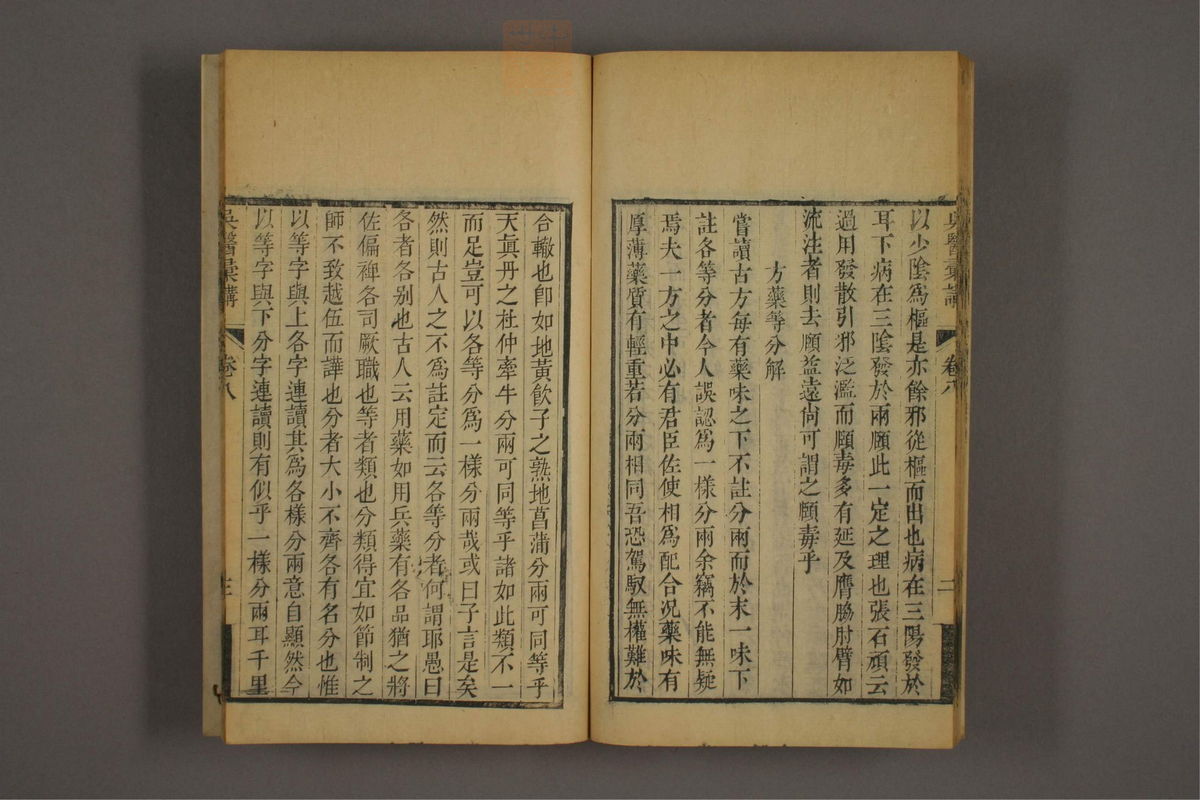 吳醫彙講
卷八
二
以少陰爲樞是亦餘邪從樞而出也病在三陽發於
耳下病在三陰發於兩頤此一定之理也張石頑云
過用發散引邪泛濫而頤毒多有延及膺脇肘臂如
流注者則去頤益遠尙可謂之頤毒乎
方藥等分解
嘗讀古方每有藥味之下不註分兩而於末一味下
註各等分者今人誤認爲一樣分兩余竊不能無疑
焉夫一方之中必有君臣佐使相爲配合況藥味有
厚薄藥質有輕重若分兩相同吾恐駕馭無權難於
合轍也卽如地黃飮子之熟地菖蒲分兩可同等乎
天眞丹之杜仲牽牛分兩可同等乎諸如此類不一
而足豈可以各等分爲一樣分兩哉或曰子言是矣
然則古人之不爲註定而云各等分者何謂耶愚曰
各者各別也古人云用藥如用兵藥有各品猶之將
佐偏裨各司厥職也等者類也分類得宜如節制之
師不致越伍而譁也分者大小不齊各有名分也惟
以等字與上各字連讀其爲各樣分兩意自顯然今
以等字與下分字連讀則有似乎一樣分兩耳千里
吳醫彙講
卷八
三